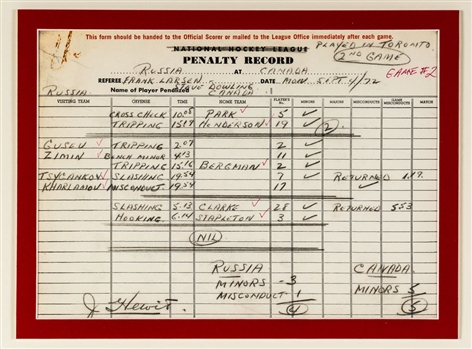 This form should be handed to the Official Scorer or mailed to the League Office immediately after each game.
NATIONAL HOCKEY LEAGUE PLAYED IN TORONTO
PENALTY RECORD 2ND GAME
RUSSIA AT CANADA GAME #2
REFEREE FRANK LARSEN DATE MON. SEPT. 4/72
STEVE DOWLING
Name of Player Penalized
RUSSIA CANADA
VISITING TEAM OFFENSE TIME HOME TEAM PLAYER'S No. MINORS MAJORS MISCONDUCTS GAME MISCONDUCTS MATCH
CROSS CHECK 10.08 PARK 5 ✓
TRIPPING 15.19 HENDERSON 19 ✓ 2
GUSEV TRIPPING 2.07 2 ✓
ZIMIN BENCH MINOR 4.13 11 ✓
TRIPPING 15.16 BERGMAN 2 ✓
TSYGANKOV SLASHING 19.54 7 ✓ RETURNED 1.19
KHARLAMOV MISCONDUCT 19.54 17 ✓
SLASHING 5.13 CLARKE 28 ✓ RETURNED 5.53
HOOKING 6.14 STAPLETON 3 ✓
NIL
RUSSIA CANADA
MINORS - 3 MINORS 5
MISCONDUCT 1
4 5
J Hewitt